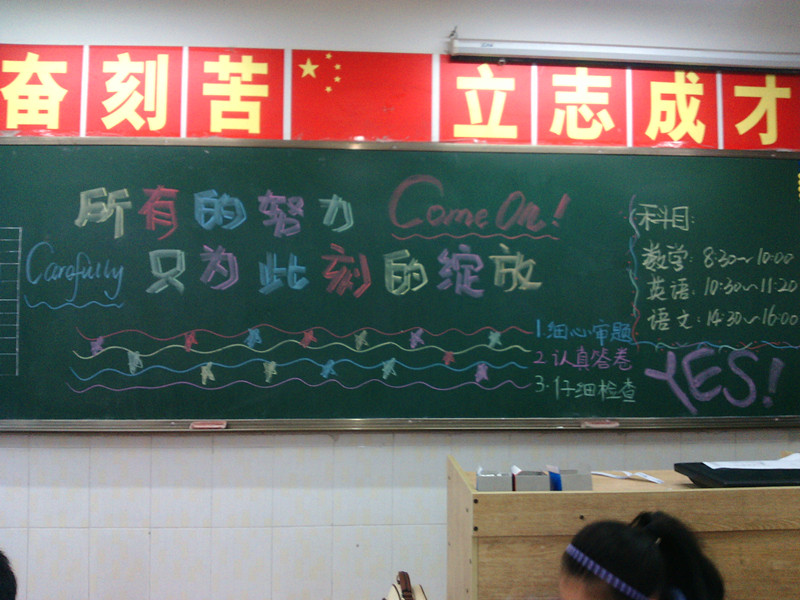 奋刻苦 立志成才
所有的努力 Come On!
Carefully 只为此刻的绽放
科目:
数学: 8:30~10:00
英语: 10:30~11:20
语文: 14:30~16:00
1.细心审题
2.认真答卷
3.仔细检查
YES!